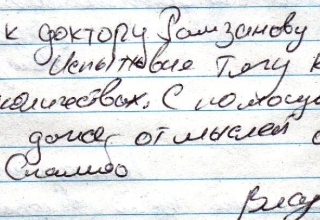 к доктору Рамзанову
Испытывая тягу к
количествах. С помощью
даже от мыслей о
Спасибо
Влад